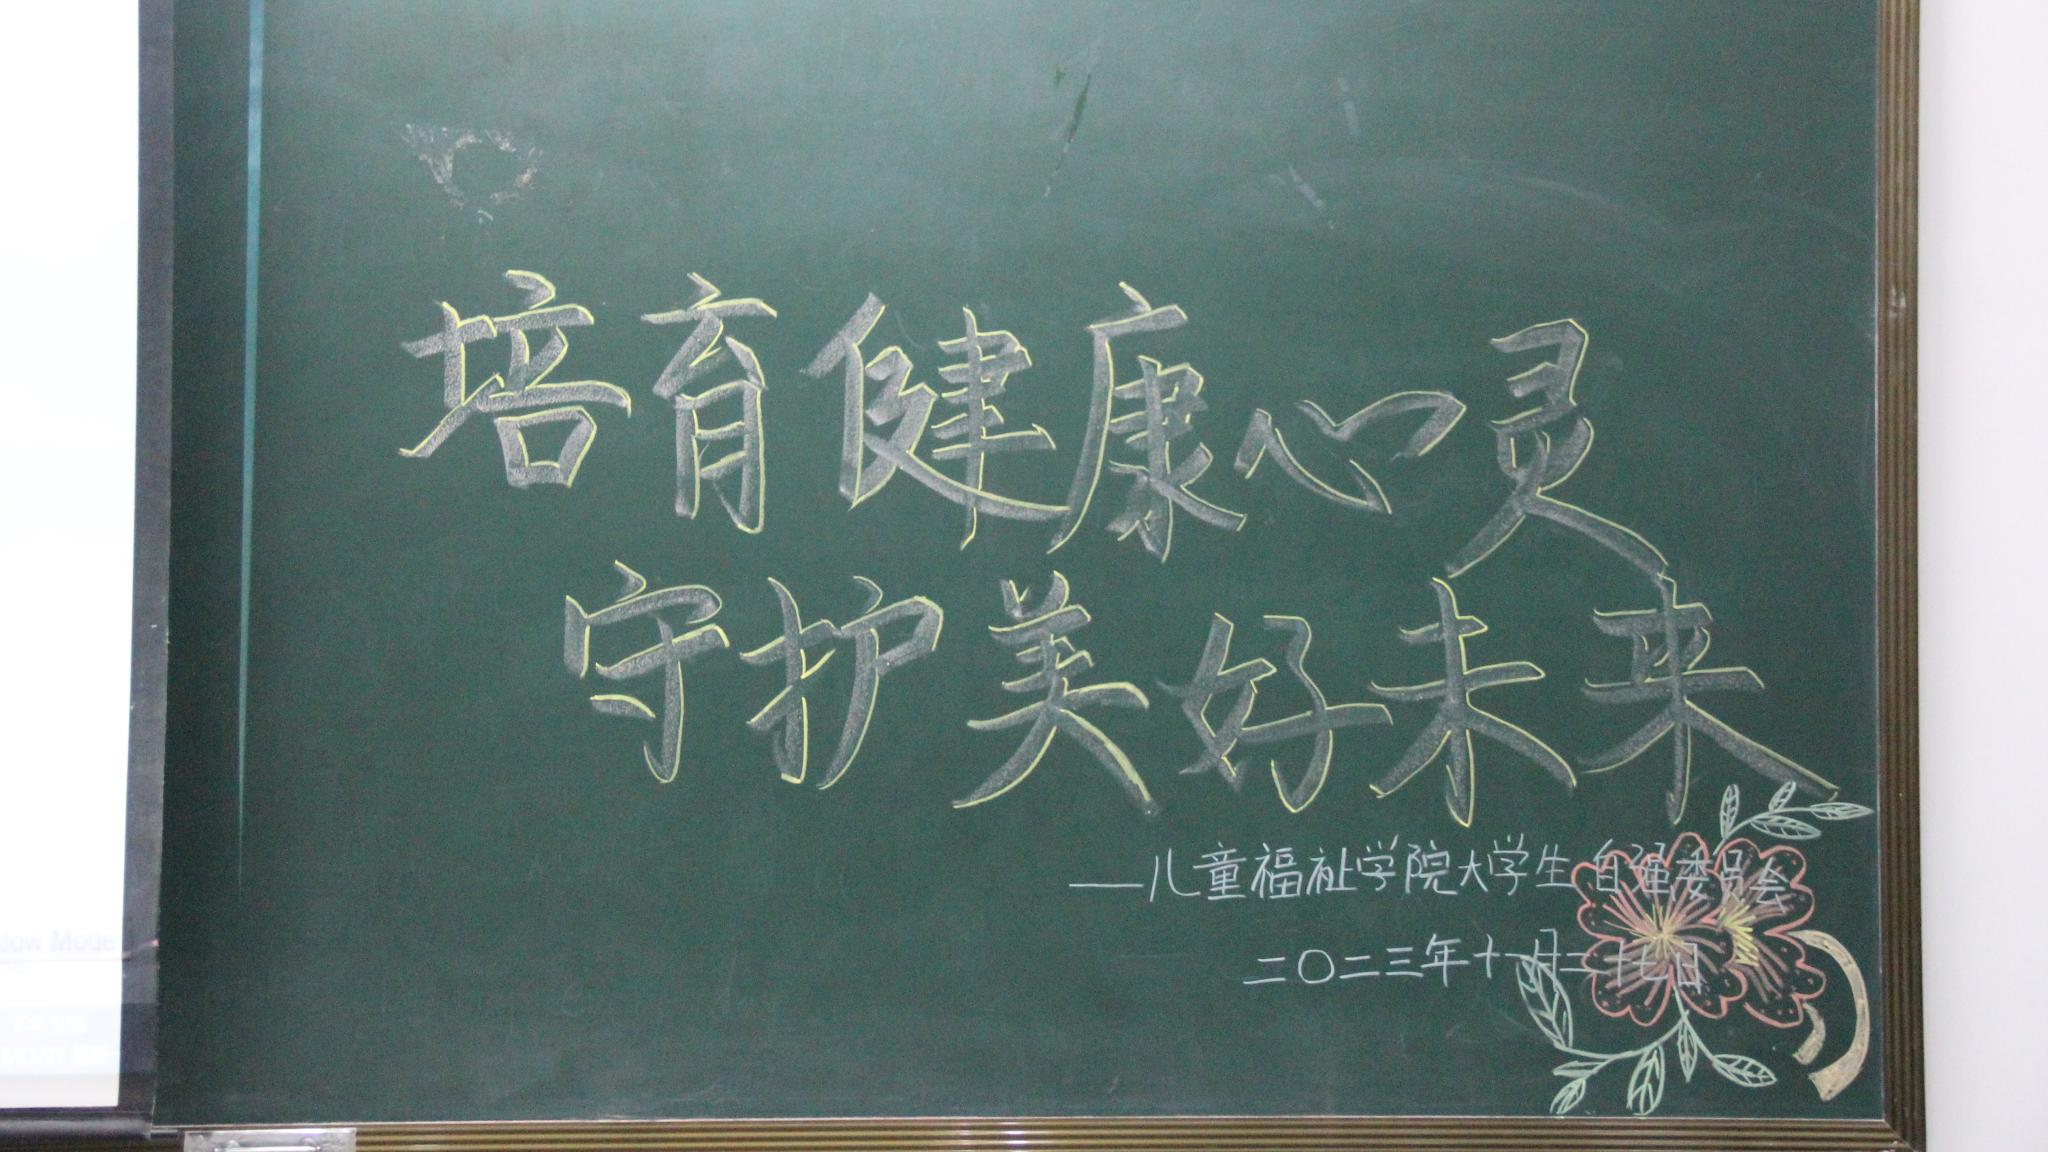 培育健康心灵
守护美好未来
——儿童福祉学院大学生自强委员会
二〇二三年十一月二十七日
dow Mode